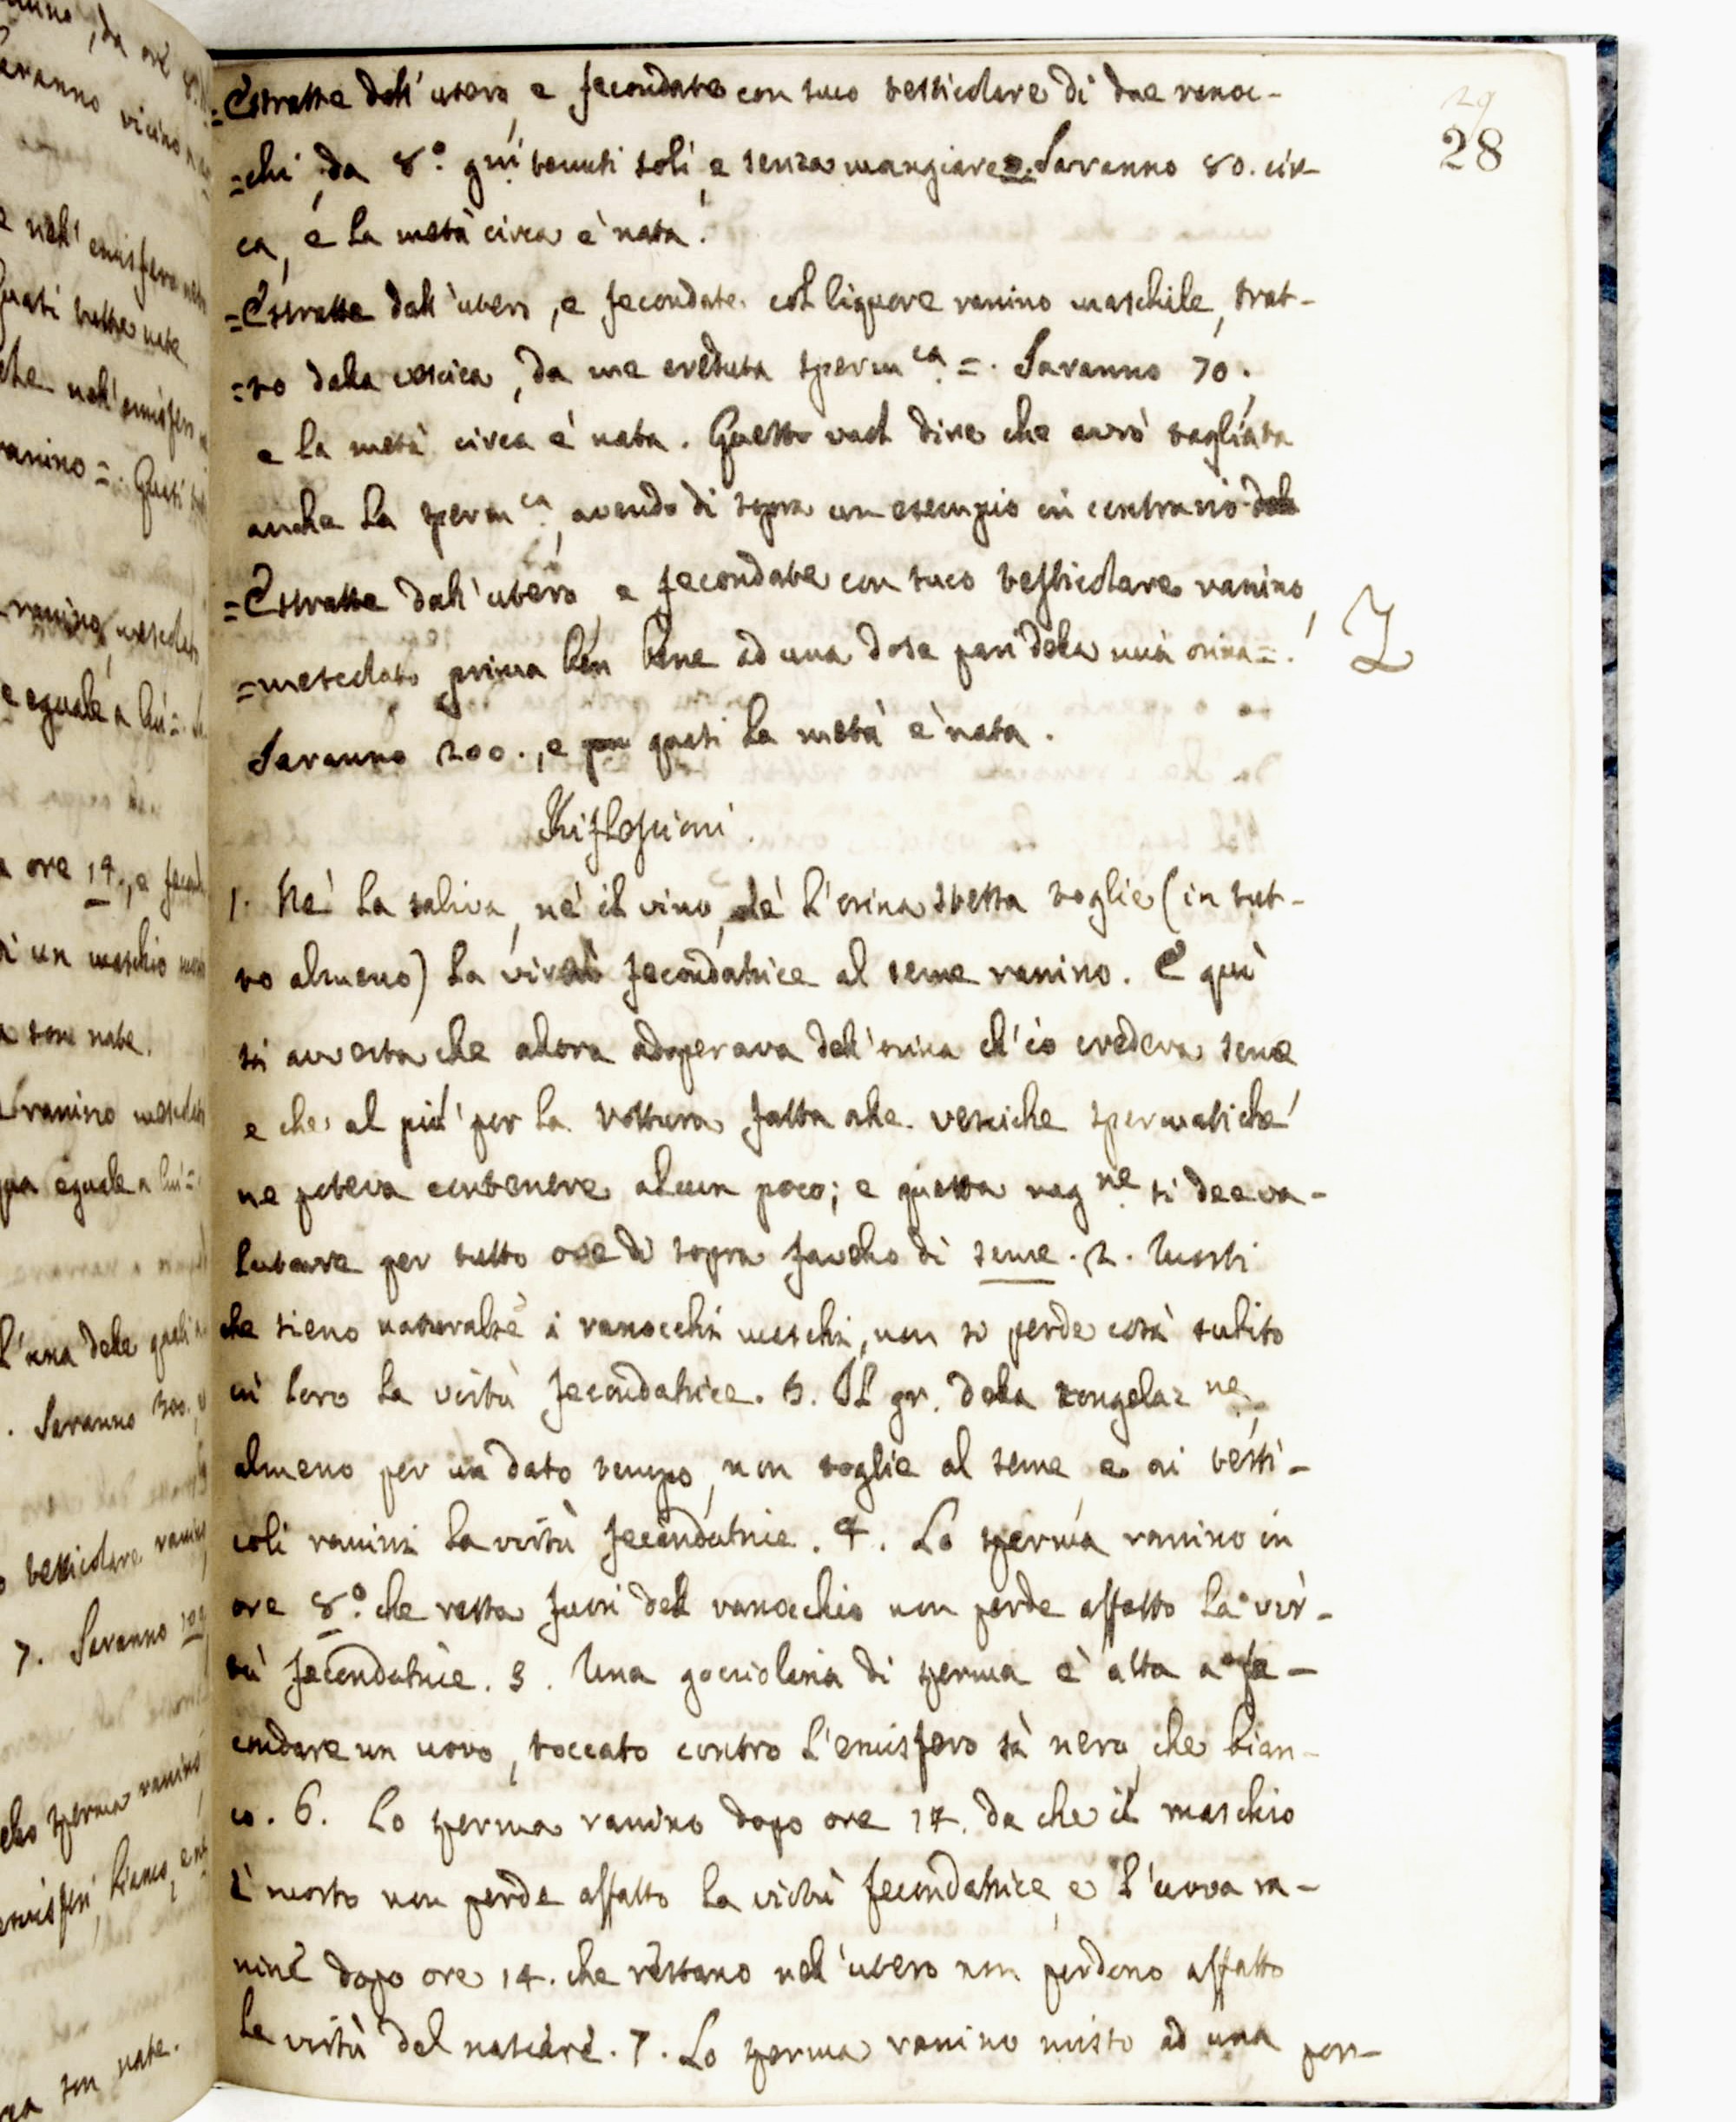 29
28
=Estratte dall' utero, e fecondate con suco testicolare di due ranoc-
=chi, da 8.º gni tenuti soli, e senza mangiare=. Saranno 80. cir-
ca, e la metà circa è nata.
=Estratte dall'utero, e fecondate col liquore ranino maschile, trat-
=to dalla vescica, da me creduta sperm.ca =. Saranno 70.
e la metà circa è nata. Questo vuol dire che avrò tagliata
anche la sperm.ca, avendo di sopra un esempio in contrario
=Estratte dall'utero, e fecondate con suco testicolare ranino,
=mescolato prima ben bene ad una dose pari della mia orina=.
Saranno 200., e quasi la metà è nata.
Riflessioni.
1. Nè la saliva, nè il vino, nè l'orina stessa toglie (in tut-
to almeno) la virtù fecondatrice al seme ranino. E quì
si avverta che allora adoperava dell'orina ch'io credeva seme
e che al più per la rottura fatta alle vesciche spermatiche
ne poteva contenere alcun poco; e questa rag.ne si dee va-
lutare per tutto ove di sopra favello di seme. 2. Morti
che sieno naturalte i ranocchi maschi, non si perde così subito
in loro la virtù fecondatrice. 3. Il gr. della congelaz.ne,
almeno per un dato tempo, non toglie al seme e ai testi-
coli ranini la virtù fecondatrice. 4. Lo sperma ranino in
ore 8.º che resta fuori del ranocchio non perde affatto la vir-
tù fecondatrice. 5. Una gocciolina di sperma è atta a fe-
condare un uovo, toccato contro l'emisfero sì nero, che bian-
co. 6. Lo sperma ranino dopo ore 17. da che il maschio
è morto non perde affatto la virtù fecondatrice, e l'uova ra-
nine dopo ore 14. che restano nell'utero non perdono affatto
la virtù del nascere. 7. Lo sperma ranino misto ad una por-